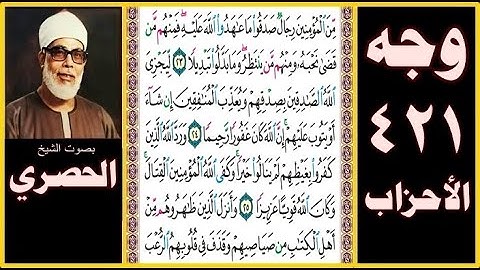 وجه
٤٢١
الأحزاب
مِّنَ الْمُؤْمِنِينَ رِجَالٌ صَدَقُوا مَا عَاهَدُوا اللَّهَ عَلَيْهِ فَمِنْهُم مَّن
قَضَىٰ نَحْبَهُ وَمِنْهُم مَّن يَنتَظِرُ وَمَا بَدَّلُوا تَبْدِيلًا ٢٣ لِّيَجْزِيَ
اللَّهُ الصَّادِقِينَ بِصِدْقِهِمْ وَيُعَذِّبَ الْمُنَافِقِينَ إِن شَاءَ
أَوْ يَتُوبَ عَلَيْهِمْ إِنَّ اللَّهَ كَانَ غَفُورًا رَّحِيمًا ٢٤ وَرَدَّ اللَّهُ الَّذِينَ
كَفَرُوا بِغَيْظِهِمْ لَمْ يَنَالُوا خَيْرًا وَكَفَى اللَّهُ الْمُؤْمِنِينَ الْقِتَالَ
وَكَانَ اللَّهُ قَوِيًّا عَزِيزًا ٢٥ وَأَنزَلَ الَّذِينَ ظَاهَرُوهُم مِّنْ
أَهْلِ الْكِتَابِ مِن صَيَاصِيهِمْ وَقَذَفَ فِي قُلُوبِهِمُ الرُّعْبَ
بصوت الشيخ
الحصري